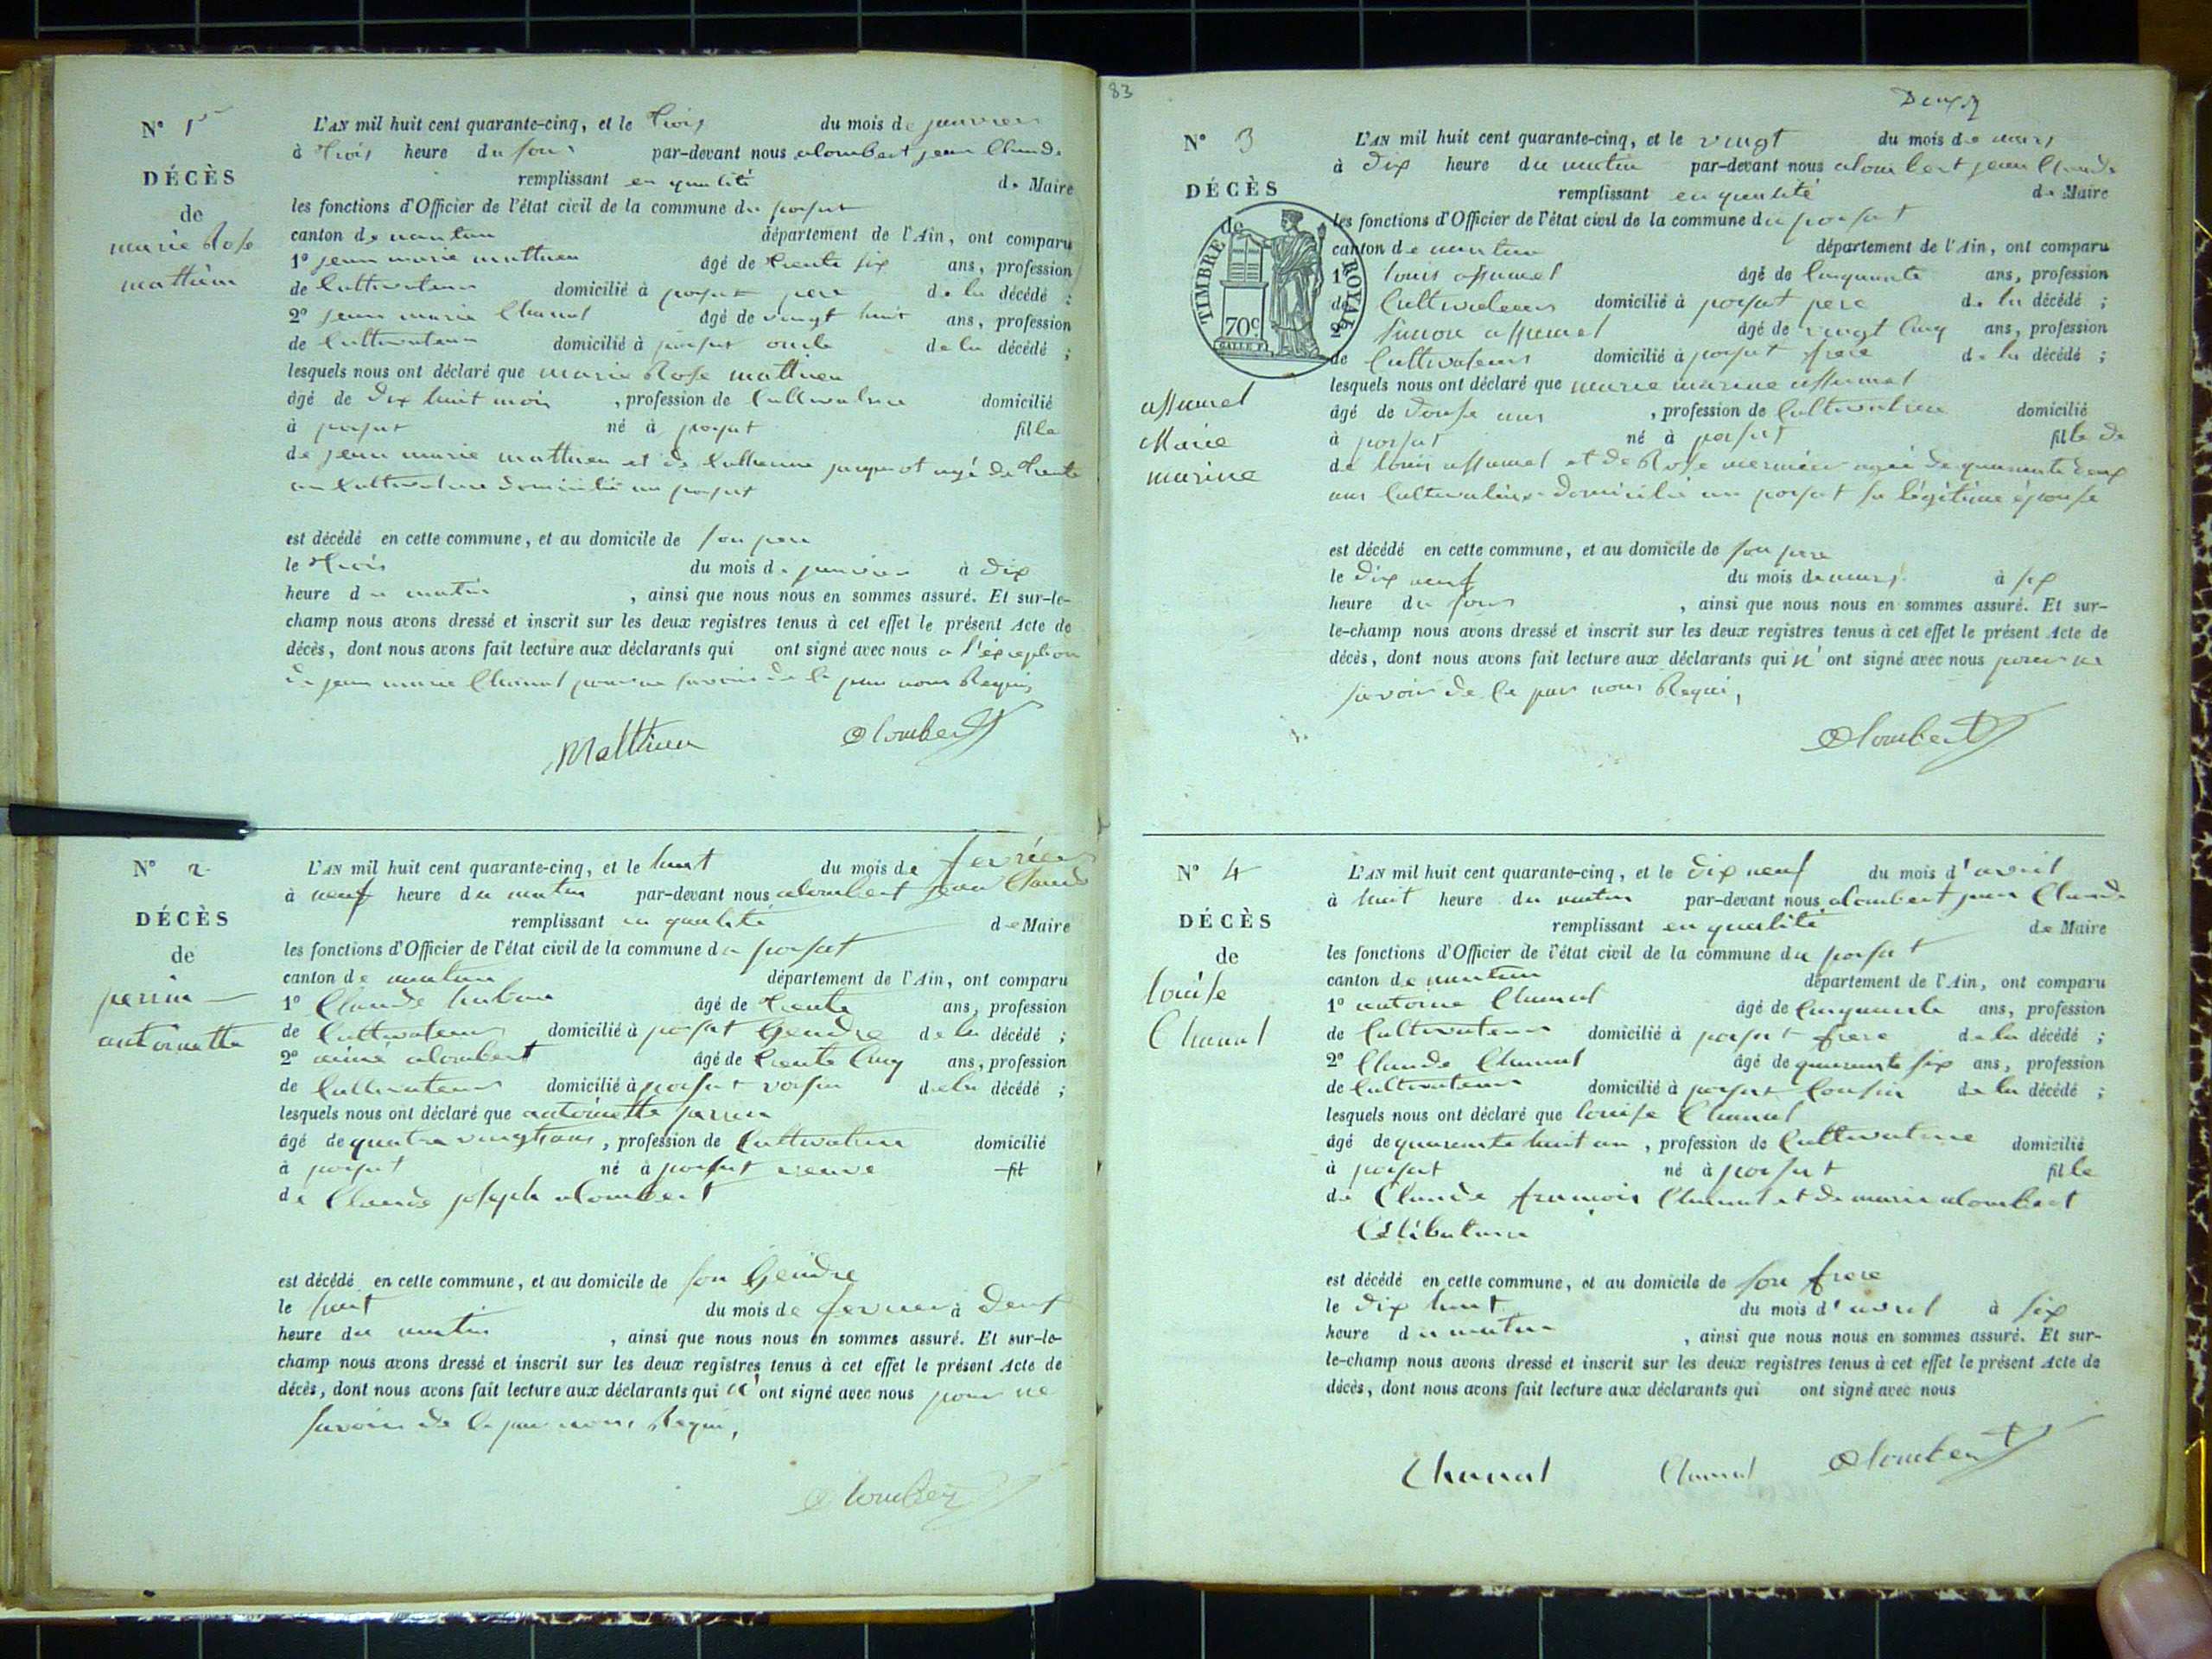 N° 1er
DÉCÈS
de
marie Rose
mathieu
L'AN mil huit cent quarante-cinq, et le trois du mois de janvier
à trois heure du soir par-devant nous alombert jean Claude
remplissant en qualité de Maire
les fonctions d'Officier de l'état civil de la commune du poisat
canton de nantua département de l'Ain, ont comparu
1° jean marie mathieu âgé de trente six ans, profession
de Cultivateur domicilié à poisat pere de la décédé ;
2° jean marie Chanal âgé de vingt huit ans, profession
de Cultivateur domicilié à poisat oncle de la décédé ;
lesquels nous ont déclaré que marie Rose mathieu
âgé de dix huit mois , profession de Cultivatrice domicilié
à poisat né à poisat fille
de jean marie mathieu et de Catherine jacquenot agé de trente
an Cultivatrice domicilié au poisat
est décédé en cette commune, et au domicile de son pere
le trois du mois de janvier à dix
heure du matin , ainsi que nous nous en sommes assuré. Et sur-le-
champ nous avons dressé et inscrit sur les deux registres tenus à cet effet le présent Acte de
décès, dont nous avons fait lecture aux déclarants qui ont signé avec nous a l'exception
de jean marie Chanal pour ne savoir de ce par nous Requis
Matthieu Alombert
N° 2
DÉCÈS
de
perrin
antoinette
L'AN mil huit cent quarante-cinq, et le huit du mois de fevrier
à neuf heure du matin par-devant nous alombert jean Claude
remplissant en qualité de Maire
les fonctions d'Officier de l'état civil de la commune du poisat
canton de nantua département de l'Ain, ont comparu
1° Claude âgé de trente ans, profession
de Cultivateur domicilié à poisat Gendre de la décédé ;
2° aimé alombert âgé de trente Cinq ans, profession
de Cultivateur domicilié à poisat voisin de la décédé ;
lesquels nous ont déclaré que antoinette perrin
âgé de quatre vingts ans , profession de Cultivatrice domicilié
à poisat né à poisat veuve fil
de Claude joseph alombert
est décédé en cette commune, et au domicile de son Gendre
le huit du mois de fevrier à deux
heure du matin , ainsi que nous nous en sommes assuré. Et sur-le-
champ nous avons dressé et inscrit sur les deux registres tenus à cet effet le présent Acte de
décès, dont nous avons fait lecture aux déclarants qui n'ont signé avec nous pour ne
savoir de ce par nous Requi,
Alombert
83
Deux
N° 3
DÉCÈS
de
TIMBRE ROYAL
70c
assumel
Marie
marine
L'AN mil huit cent quarante-cinq, et le vingt du mois de mars
à dix heure du matin par-devant nous alombert jean Claude
remplissant en qualité de Maire
les fonctions d'Officier de l'état civil de la commune du poisat
canton de nantua département de l'Ain, ont comparu
1° louis assumel âgé de Cinquante ans, profession
de Cultivateur domicilié à poisat pere de la décédé ;
2° Simon assumel âgé de vingt Cinq ans, profession
de Cultivateur domicilié à poisat frere de la décédé ;
lesquels nous ont déclaré que marie marine assumel
âgé de douse ans , profession de Cultivatrice domicilié
à poisat né à poisat fille de
de louis assumel et de Rose mermier agée de quarante deux
ans Cultivatrice domicilié au poisat sa légitime épouse
est décédé en cette commune, et au domicile de son pere
le dix neuf du mois de mars à six
heure du soir , ainsi que nous nous en sommes assuré. Et sur-
le-champ nous avons dressé et inscrit sur les deux registres tenus à cet effet le présent Acte de
décès, dont nous avons fait lecture aux déclarants qui n'ont signé avec nous pour ne
savoir de ce par nous Requi,
Alombert
N° 4
DÉCÈS
de
louise
Chanal
L'AN mil huit cent quarante-cinq, et le dix neuf du mois d'avril
à huit heure du matin par-devant nous alombert jean Claude
remplissant en qualité de Maire
les fonctions d'Officier de l'état civil de la commune du poisat
canton de nantua département de l'Ain, ont comparu
1° antoine Chanal âgé de Cinquante ans, profession
de Cultivateur domicilié à poisat frere de la décédé ;
2° Claude Chanal âgé de quarante six ans, profession
de Cultivateur domicilié à poisat Cousin de la décédé ;
lesquels nous ont déclaré que louise Chanal
âgé de quarante huit an , profession de Cultivatrice domicilié
à poisat né à poisat fille
de Claude françois Chanal et de marie alombert
Célibataire
est décédé en cette commune, et au domicile de son frere
le dix huit du mois d'avril à six
heure du matin , ainsi que nous nous en sommes assuré. Et sur-
le-champ nous avons dressé et inscrit sur les deux registres tenus à cet effet le présent Acte de
décès, dont nous avons fait lecture aux déclarants qui ont signé avec nous
Chanal Chanal Alombert